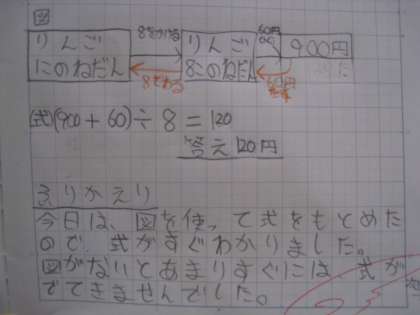 図
りんご 8をかける りんご 60円 900円
にのねだん 8でわる 8このねだん 60円
(式)(900+60)÷8=120
答え120円
ふりかえり
今日は、図を使って式をもとめた
ので、式がすぐわかりました。
図がないとあまりすぐには式が
でてきませんでした。